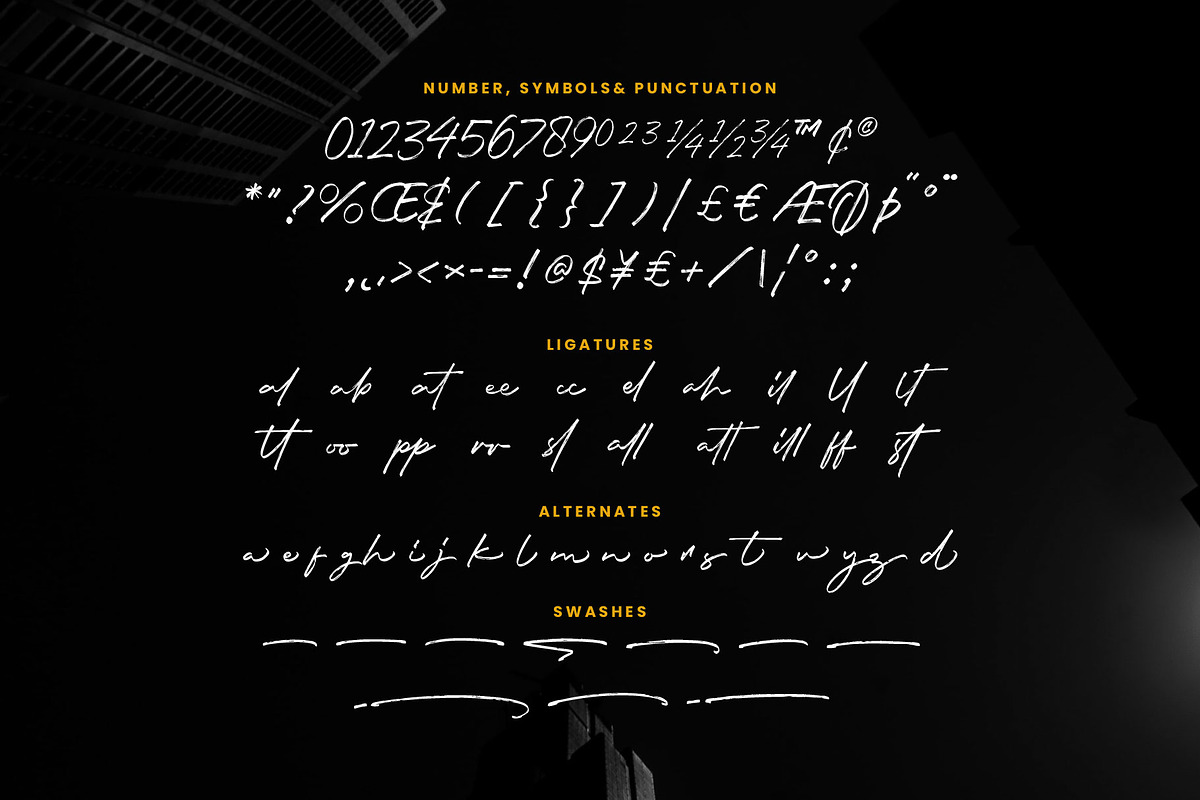 NUMBER, SYMBOLS& PUNCTUATION
01234567890 2 3 1/4 1/2 3/4 ™ ¢ ©
* " . ? % Œ ₡ ( [ { } ] ) | £ € Æ Ø þ " ° ¨
, . , > < × - = ! @ $ ¥ £ + / \ ¦ ° : ;
LIGATURES
al ab at ee cc el ah il ll lt
tt oo pp rr sl all att ill ff st
ALTERNATES
a e f g h i j k l m n o r s t w y z d
SWASHES